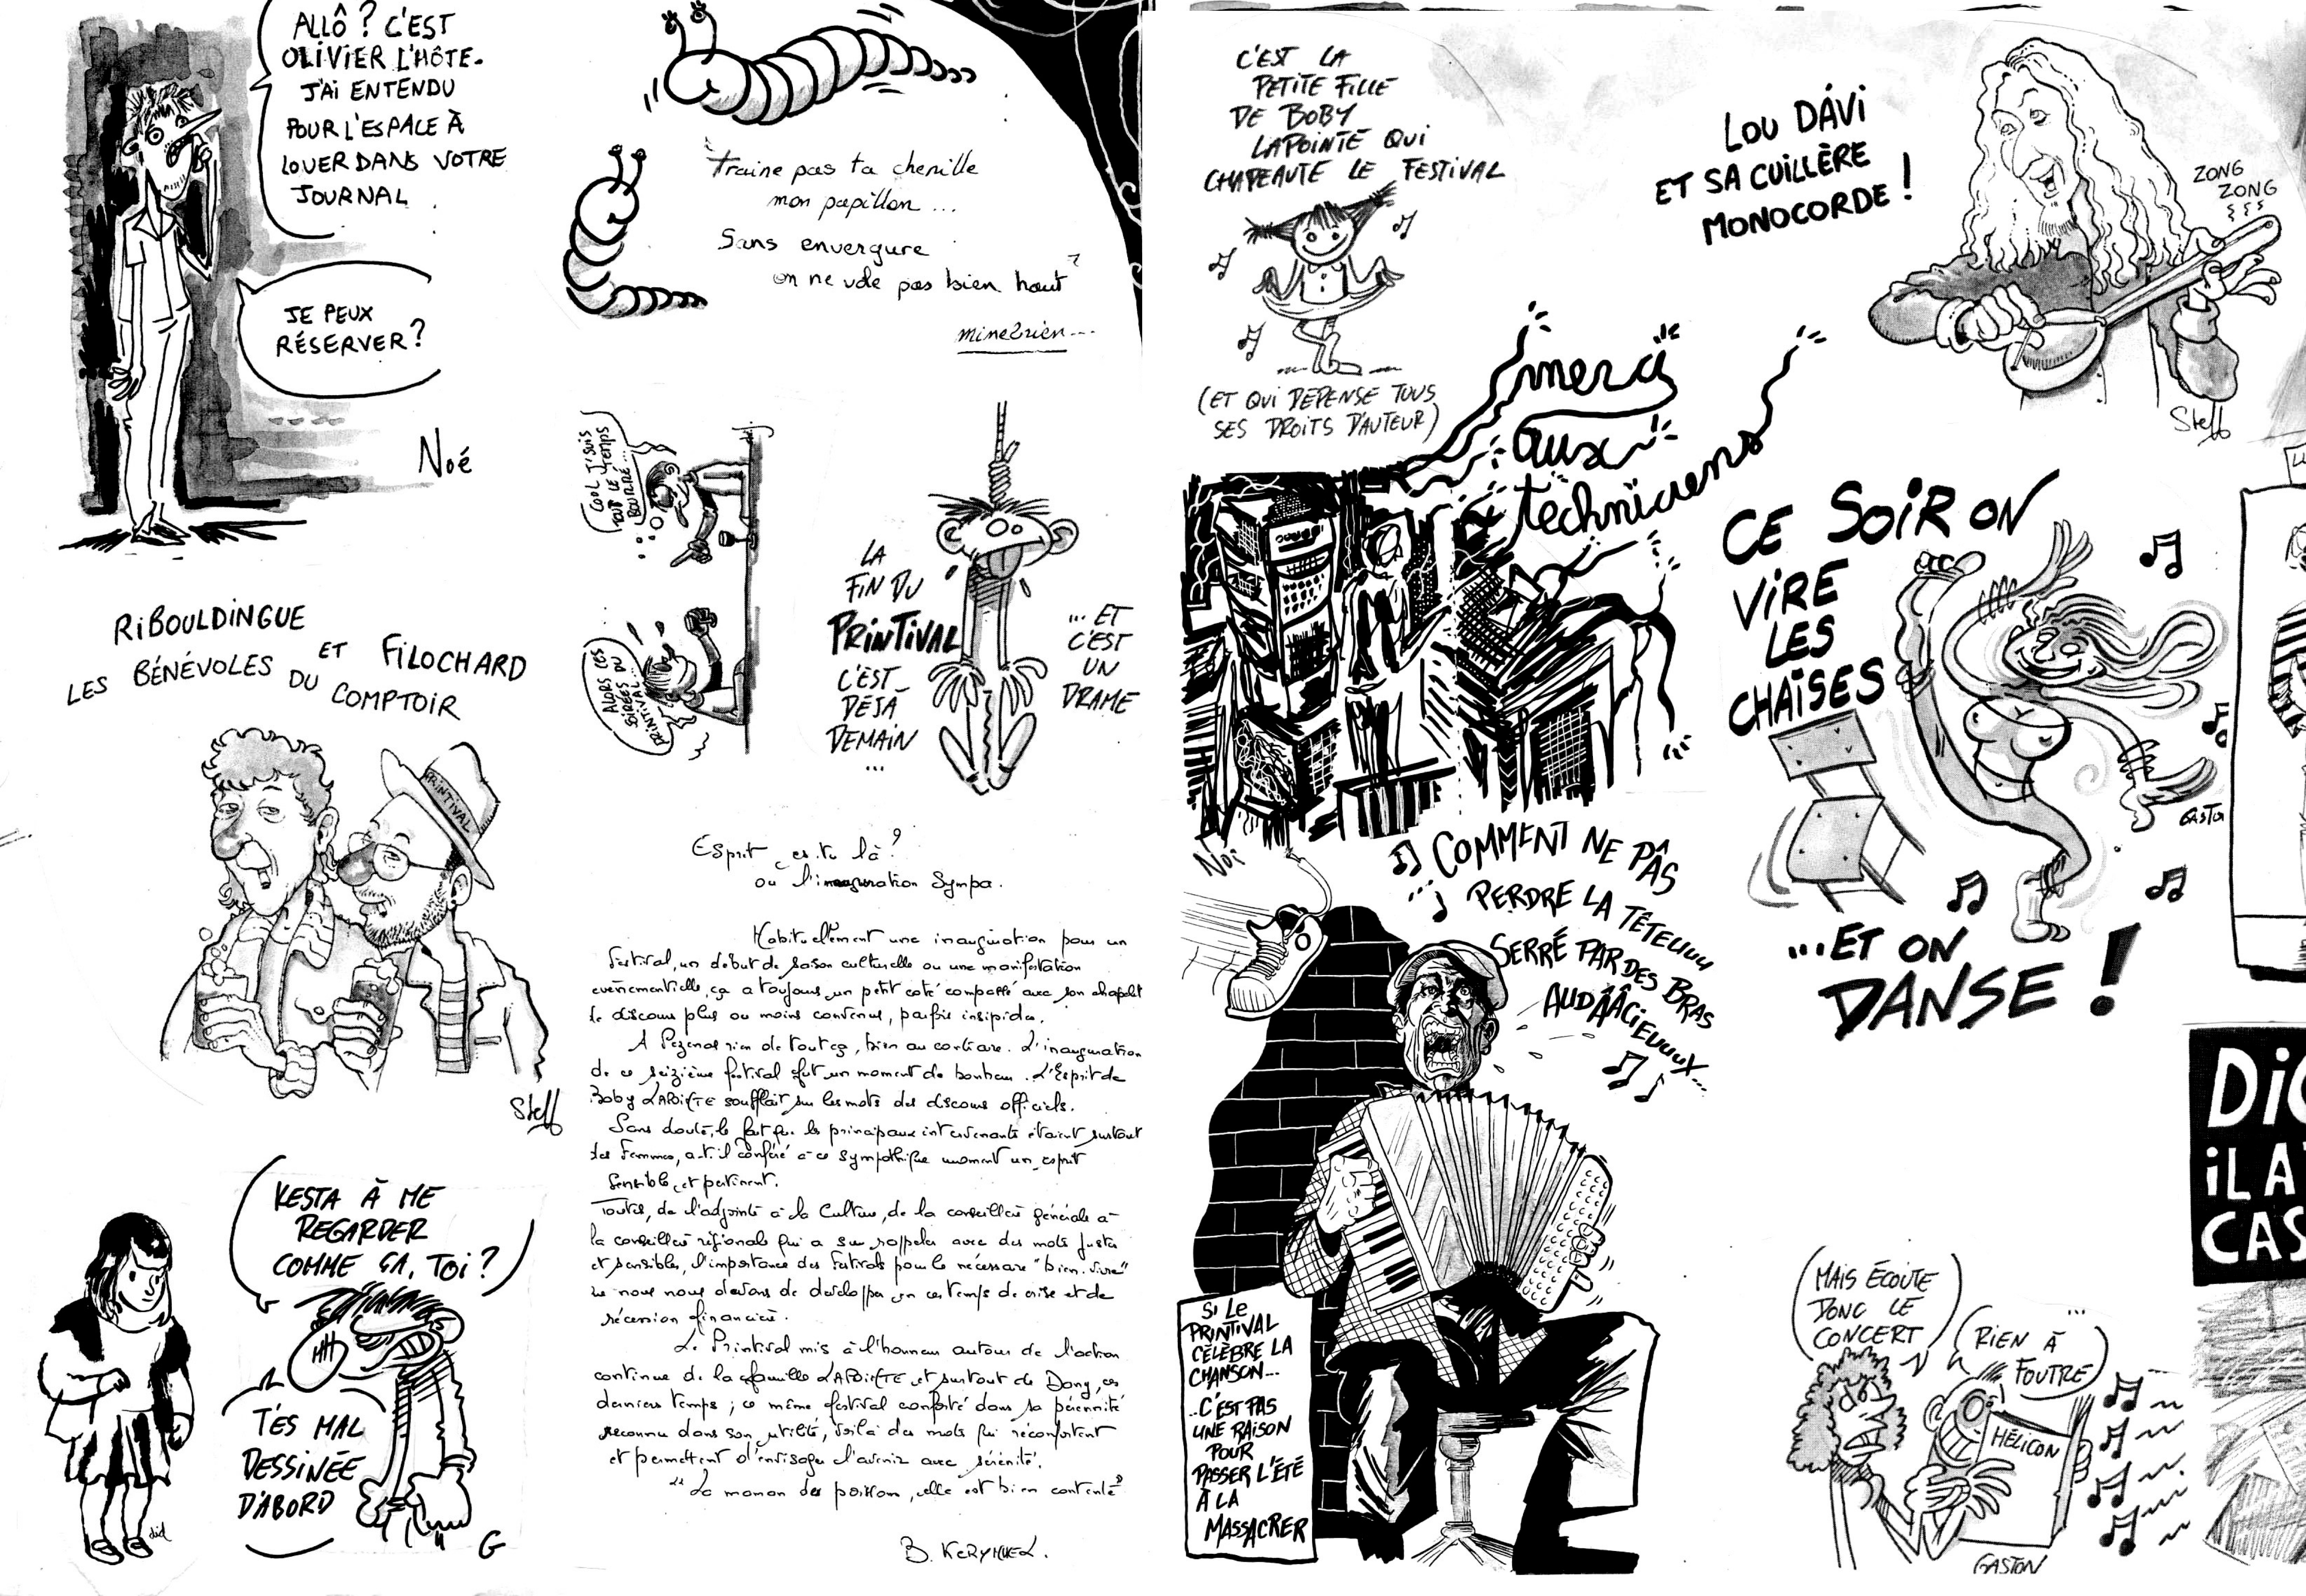 ALLÔ ? C'EST
OLIVIER L'HÔTE.
J'AI ENTENDU
POUR L'ESPACE À
LOUER DANS VOTRE
JOURNAL
JE PEUX
RÉSERVER ?
Noé
Traine pas ta chenille
mon papillon ...
Sans envergure
on ne vole pas bien haut
mine2rien...
COOL J'SUIS
TOUT LE TEMPS
BOURRÉ...
ALORS CES
SOIRÉES DU
PRINTIVAL...
LA
FIN DU
PRINTIVAL
C'EST
DÉJÀ
DEMAIN
...
... ET
C'EST
UN
DRAME
RIBOULDINGUE
ET FILOCHARD
LES BÉNÉVOLES DU COMPTOIR
PRINTIVAL
Steff
KESTA À ME
REGARDER
COMME ÇA, TOI ?
T'ES MAL
DESSINÉE
D'ABORD
did
G
Esprit es-tu là ?
ou l'inauguration Sympa.
Habituellement une inauguration pour un
festival, un début de saison culturelle ou une manifestation
evènementielle, ça a toujours un petit coté compassé avec son chapelet
de discours plus ou moins convenus, parfois insipides.
A Pezenas rien de tout ça, bien au contraire. L'inauguration
de ce seizième festival fut un moment de bonheur. L'Esprit de
Boby LAPOINTE soufflait sur les mots des discours officiels.
Sans doute, le fait que les principaux intervenants étaient surtout
des Femmes, a-t-il conféré à ce sympathique moment un esprit
sensible et pertinent.
Toutes, de l'adjointe à la Culture, de la conseillère générale à
la conseillère régionale qui a su rappeler avec des mots justes
et sensibles, l'importance des Festivals pour le nécessaire "bien-vivre"
que nous nous devons de développer en ces temps de crise et de
récession financière.
Le Printival mis à l'honneur autour de l'action
continue de la famille LAPOINTE et surtout de Dany, ces
derniers temps ; ce même festival conforté dans sa pérennité
reconnu dans son utilité, voilà des mots qui réconfortent
et permettent d'envisager l'avenir avec sérénité.
"La maman des poissons, elle est bien contente"
B. KERYHUEL.
C'EST LA
PETITE FILLE
DE BOBY
LAPOINTE QUI
CHAPEAUTE LE FESTIVAL
(ET QUI DÉPENSE TOUS
SES DROITS D'AUTEUR)
LOU DÁVI
ET SA CUILLÈRE
MONOCORDE !
ZONG
ZONG
Steff
merci
aux
techniciens
Noé
CE SOIR ON
VIRE
LES
CHAISES
GASTON
...ET ON
DANSE !
COMMENT NE PÂS
PERDRE LA TÊTEUUU
SERRÉ PAR DES BRAS
AUDÂÂÂCIEUUUX...
SI LE
PRINTIVAL
CÉLÈBRE LA
CHANSON...
..C'EST PAS
UNE RAISON
POUR
PASSER L'ÉTÉ
À LA
MASSACRER
MAIS ÉCOUTE
DONC LE
CONCERT
...
RIEN À
FOUTRE
HÉLICON
GASTON
DiC
iL A
CAS